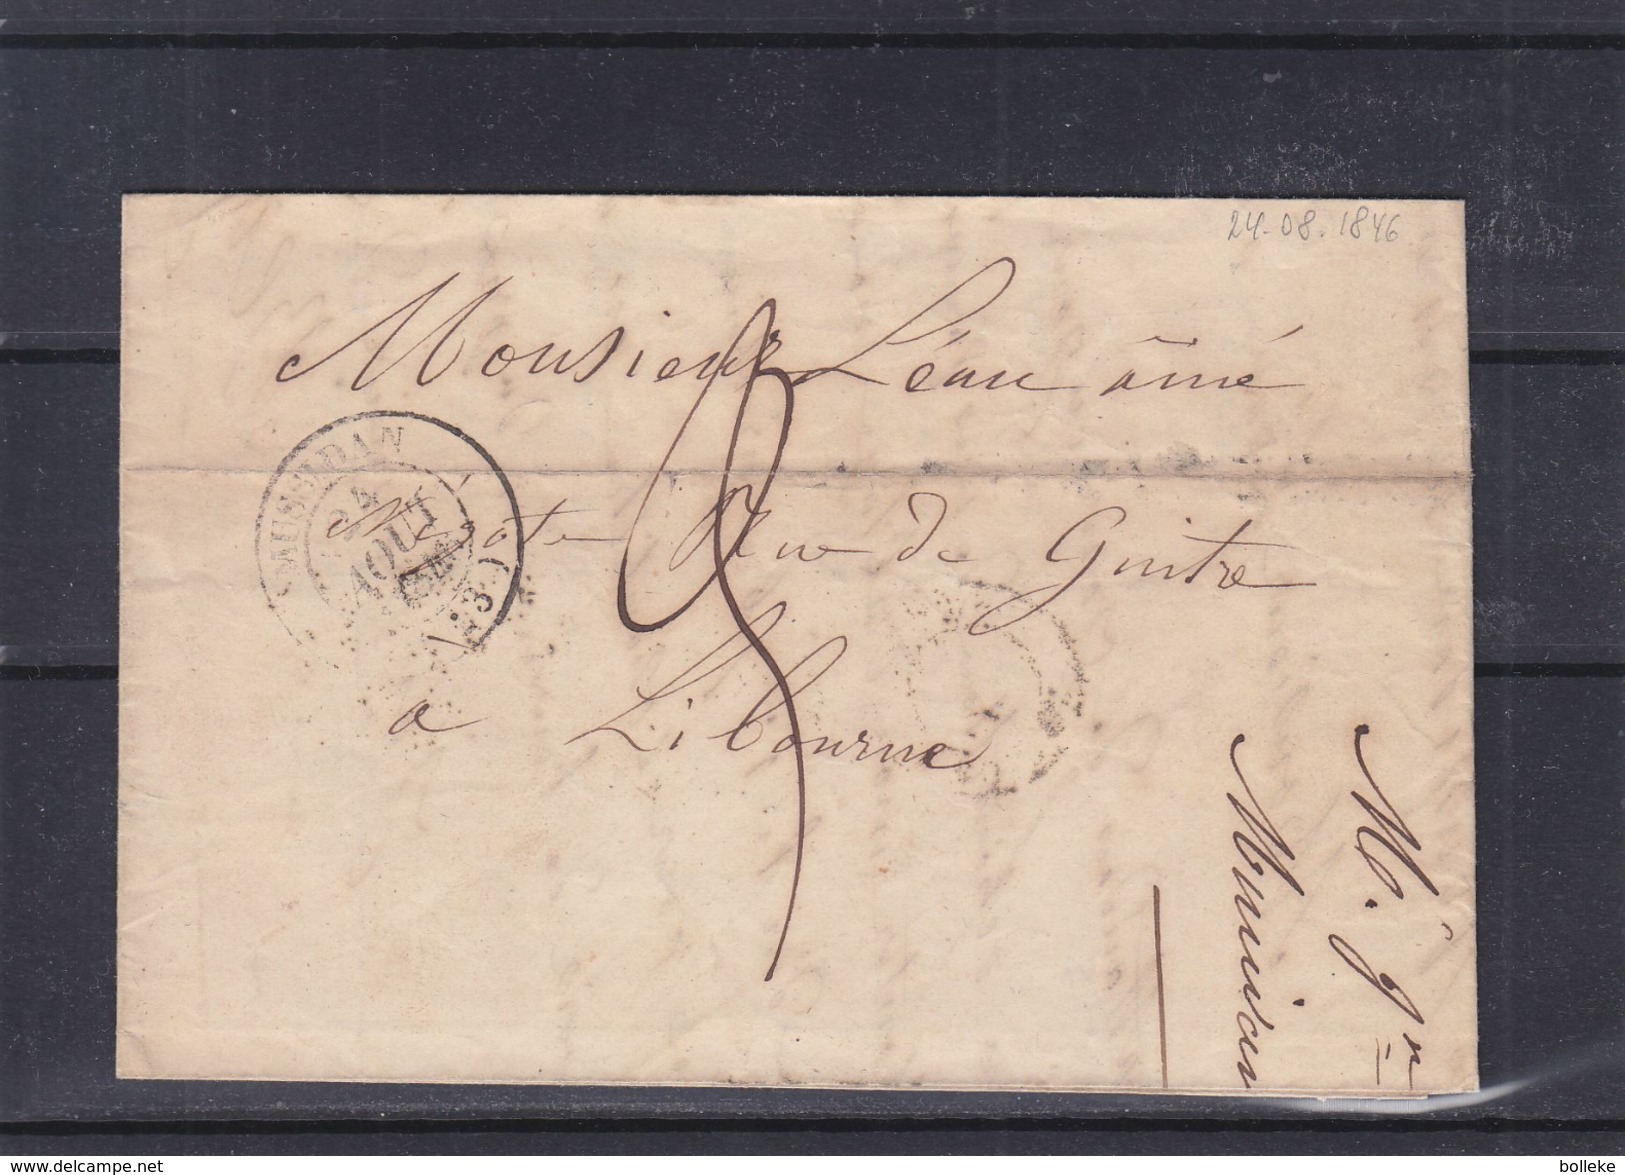 24-08.1846
Monsieur Léau ainé
Négote Rue de Guitre
a Libourne
MUSSIDAN
24
AOUT
(23)
M. Jn
www.delcampe.net
bolleke